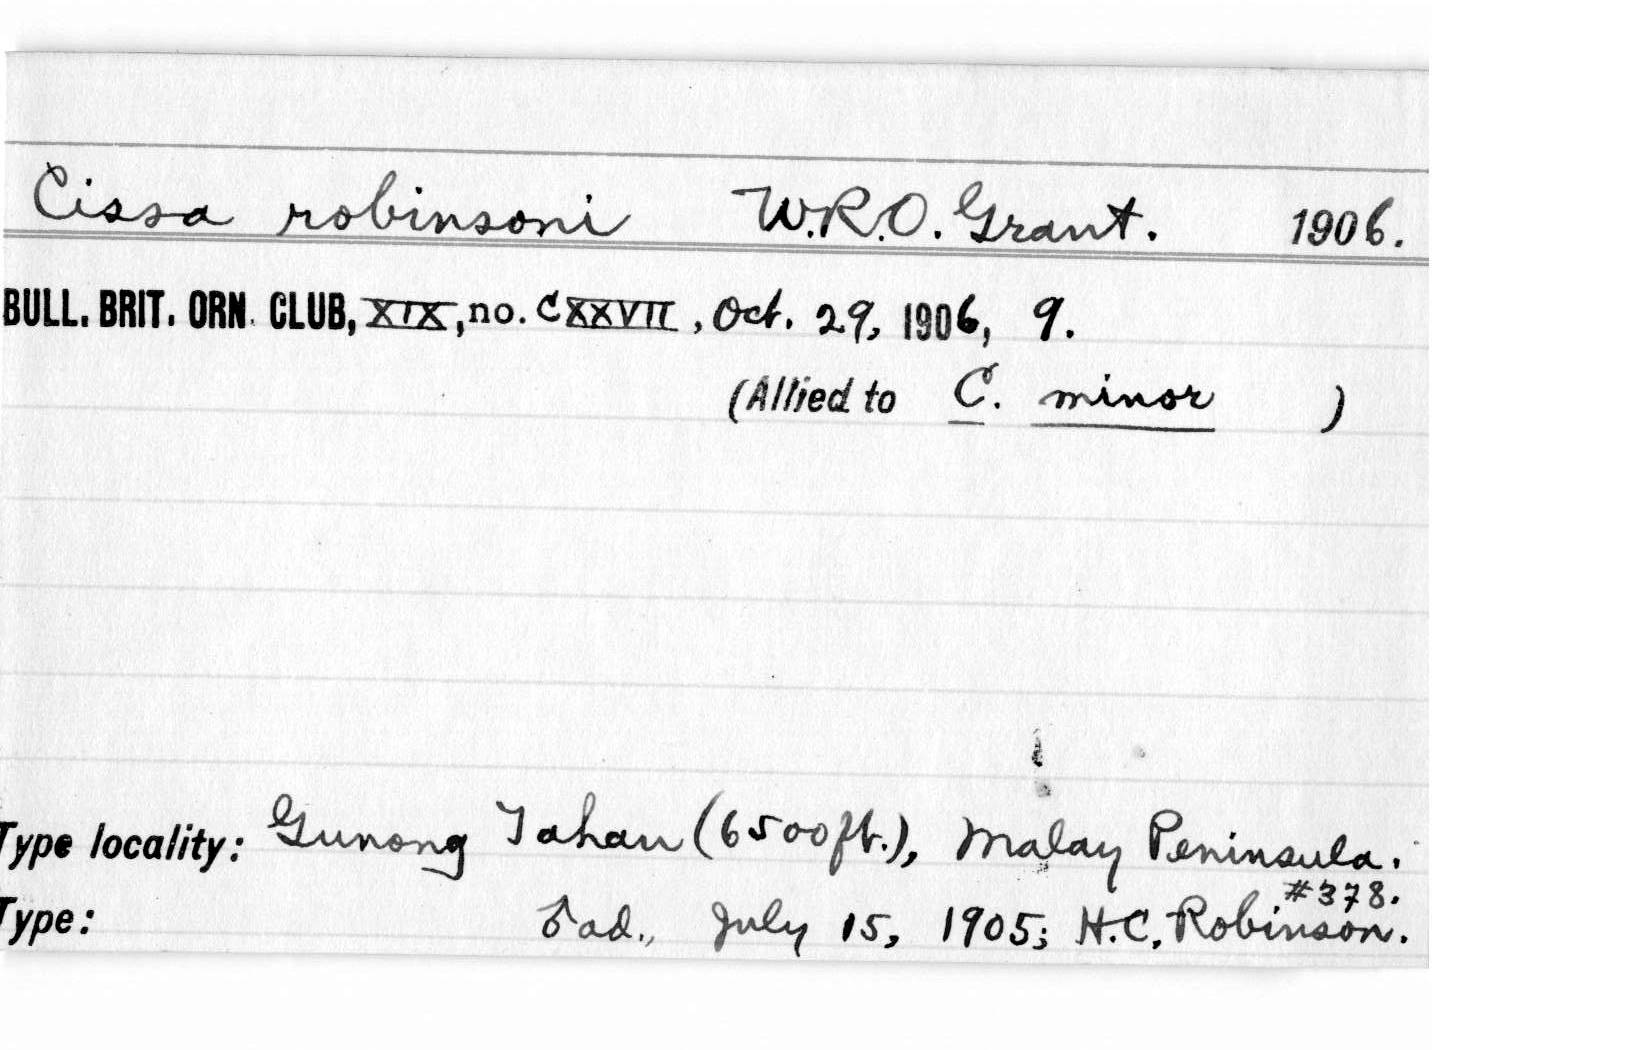 Cissa robinsoni W.R.O. Grant. 1906.
BULL. BRIT. ORN. CLUB, XIX, no. CXXVII, Oct. 29, 1906, 9.
(Allied to C. minor )
Type locality: Gunong Tahan (6500ft.), Malay Peninsula.
#378.
Type: ♂ ad., July 15, 1905; H.C. Robinson.